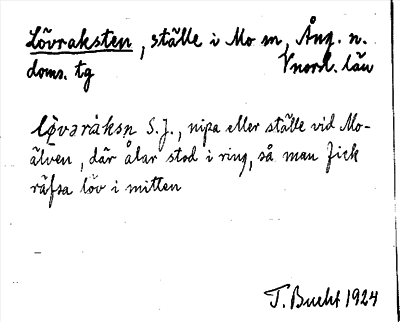 Lövraksten, ställe i Mo sn, Ång. n.
doms. tg Vnorl. län
S. J., nipa eller ställe vid Mo-
älven, där ålar stod i ring, så man fick
räfsa löv i mitten
T. Bucht 1924